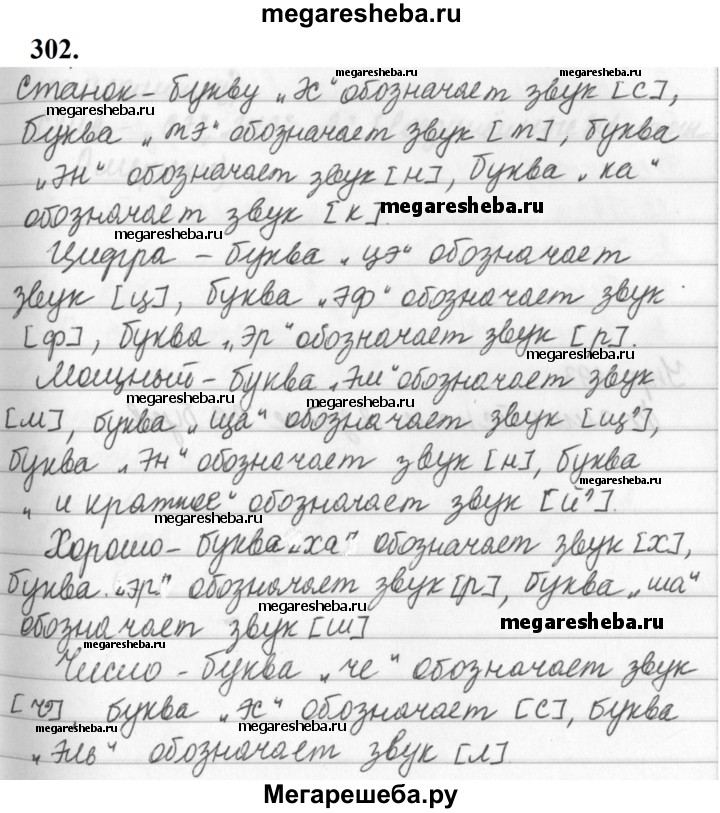 megaresheba.ru
302.
megaresheba.ru megaresheba.ru
Станок – букву „эс“ обозначает звук [с],
megaresheba.ru
буква „тэ“ обозначает звук [т], буква
megaresheba.ru megaresheba.ru
„эн“ обозначает звук [н], буква „ка“
обозначает звук [к]. megaresheba.ru
megaresheba.ru
Цифра – буква „цэ“ обозначает
звук [ц], буква „эф“ обозначает звук
megaresheba.ru
[ф], буква „эр“ обозначает звук [р].
megaresheba.ru
Мощный – буква „эм“ обозначает звук
megaresheba.ru megaresheba.ru
[м], буква „ща“ обозначает звук [щ’],
буква „эн“ обозначает звук [н], буква
megaresheba.ru
„и краткое“ обозначает звук [й’].
megaresheba.ru
Хорошо – буква „ха“ обозначает звук [х],
буква „эр“ обозначает звук [р], буква „ша“
megaresheba.ru
обозначает звук [ш] megaresheba.ru
megaresheba.ru megaresheba.ru
Число – буква „че“ обозначает звук
[ч’], буква „эс“ обозначает [с], буква
megaresheba.ru megaresheba.ru
„эль“ обозначает звук [л].
Мегарешеба.ру